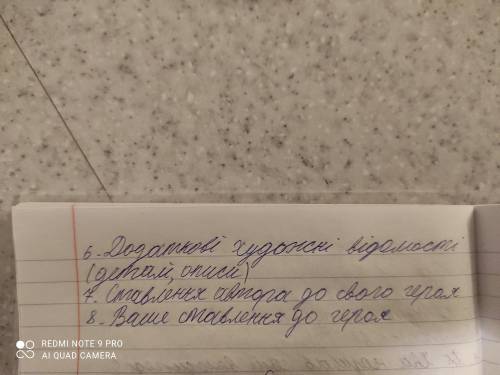 6. Додаткові художні відомості
(деталі, описи)
7. Ставлення автора до свого героя
8. Ваше ставлення до героя
REDMI NOTE 9 PRO
AI QUAD CAMERA